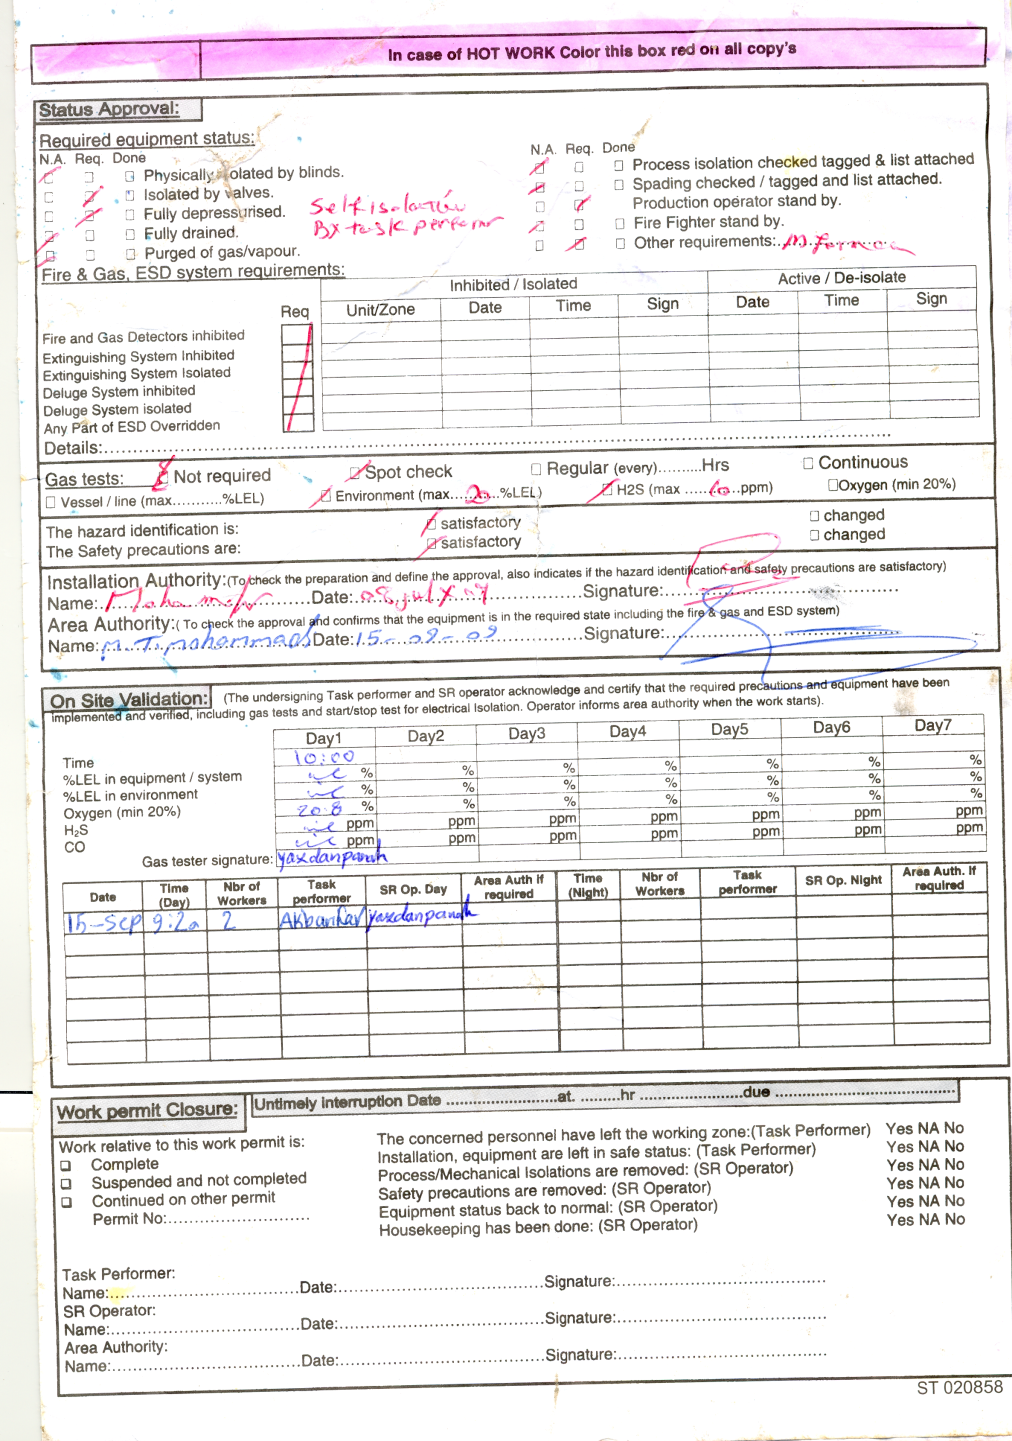 In case of HOT WORK Color this box red on all copy's
Status Approval:
Required equipment status:
N.A. Req. Done
Physically isolated by blinds.
Isolated by valves.
Fully depressurised.
Fully drained.
Purged of gas/vapour.
Self isolation
By task performer
N.A. Req. Done
Process isolation checked tagged & list attached
Spading checked / tagged and list attached.
Production operator stand by.
Fire Fighter stand by.
Other requirements:
Fire & Gas, ESD system requirements:
Inhibited / Isolated Active / De-isolate
Req Unit/Zone Date Time Sign Date Time Sign
Fire and Gas Detectors inhibited
Extinguishing System Inhibited
Extinguishing System Isolated
Deluge System inhibited
Deluge System isolated
Any Part of ESD Overridden
Details:
Gas tests: Not required Spot check Regular (every)..........Hrs Continuous
Vessel / line (max...........%LEL) Environment (max....20...%LEL) H2S (max .....10..ppm) Oxygen (min 20%)
The hazard identification is: satisfactory changed
The Safety precautions are: satisfactory changed
Installation Authority:(To check the preparation and define the approval, also indicates if the hazard identification and safety precautions are satisfactory)
Name: Date: Signature:
Area Authority:( To check the approval and confirms that the equipment is in the required state including the fire & gas and ESD system)
Name: M.T.mohammadi Date: 15-09-09 Signature:
On Site Validation: (The undersigning Task performer and SR operator acknowledge and certify that the required precautions and equipment have been
implemented and verified, including gas tests and start/stop test for electrical Isolation. Operator informs area authority when the work starts).
Day1 Day2 Day3 Day4 Day5 Day6 Day7
Time 10:00
%LEL in equipment / system % % % % % % %
%LEL in environment % % % % % % %
Oxygen (min 20%) 20.8 % % % % % % %
H2S ppm ppm ppm ppm ppm ppm ppm
CO ppm ppm ppm ppm ppm ppm ppm
Gas tester signature: yazdanpanah
Date Time (Day) Nbr of Workers Task performer SR Op. Day Area Auth If required Time (Night) Nbr of Workers Task performer SR Op. Night Area Auth. If required
15-Sep 9:20 2 yazdanpanah
Work permit Closure: Untimely interruption Date .......................at. .........hr .....................due .....................................
Work relative to this work permit is:
Complete
Suspended and not completed
Continued on other permit
Permit No:
The concerned personnel have left the working zone:(Task Performer) Yes NA No
Installation, equipment are left in safe status: (Task Performer) Yes NA No
Process/Mechanical Isolations are removed: (SR Operator) Yes NA No
Safety precautions are removed: (SR Operator) Yes NA No
Equipment status back to normal: (SR Operator) Yes NA No
Housekeeping has been done: (SR Operator) Yes NA No
Task Performer:
Name: Date: Signature:
SR Operator:
Name: Date: Signature:
Area Authority:
Name: Date: Signature:
ST 020858